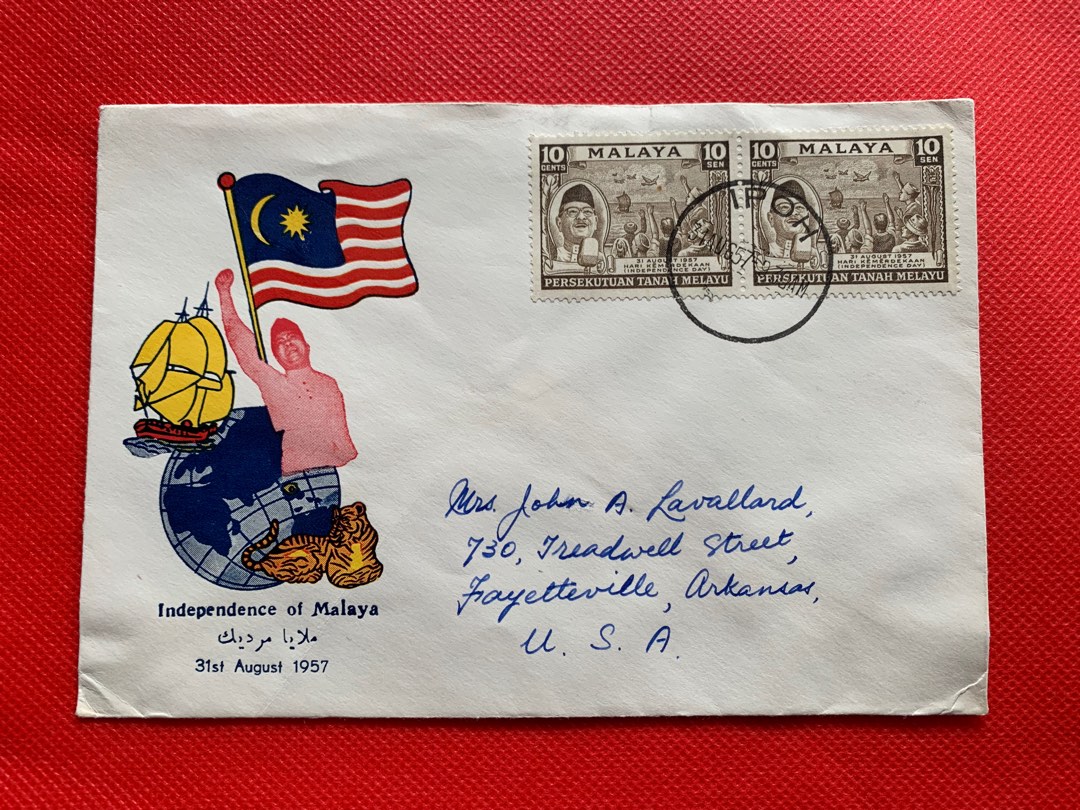 10 CENTS MALAYA 10 SEN
31 AUGUST 1957
HARI KEMERDEKAAN
(INDEPENDENCE DAY)
PERSEKUTUAN TANAH MELAYU
10 CENTS MALAYA 10 SEN
31 AUGUST 1957
HARI KEMERDEKAAN
(INDEPENDENCE DAY)
PERSEKUTUAN TANAH MELAYU
IPOH
31AUG57
Mrs. John A. Lavallard,
730, Treadwell Street,
Fayetteville, Arkansas,
U. S. A.
Independence of Malaya
ملايا مرديك
31st August 1957